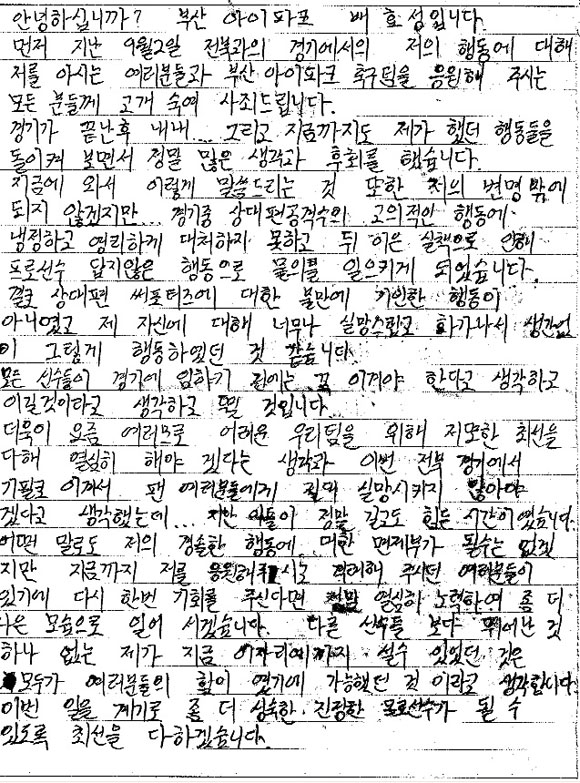 안녕하십니까? 부산 아이파크 배효성입니다.
먼저 지난 9월2일 전북과의 경기에서의 저의 행동에 대해
저를 아시는 여러분들과 부산아이파크 축구팀을 응원해 주시는
모든 분들께 고개 숙여 사죄드립니다.
경기가 끝난후 내내... 그리고 지금까지도 제가 했던 행동들을
돌이켜 보면서 정말 많은 생각과 후회를 했습니다.
지금에 와서 이렇게 말씀드리는 것 또한 저의 변명 밖에
되지 않겠지만... 경기중 상대편공격수의 고의적인 행동에
냉정하고 영리하게 대처하지 못하고 뒤 이은 실책으로 인해
프로선수 답지않은 행동으로 물의를 일으키게 되었습니다.
결코 상대편 써포터즈에 대한 불만에 기인한 행동이
아니였고 제 자신에 대해 너무나 실망스럽고 화가나서 생각없
이 그렇게 행동하였던 것 같습니다
모든 선수들이 경기에 임하기 전에는 꼭 이겨야 한다고 생각하고
이길것이다고 생각하고 뛸 것입니다.
더욱이 요즘 여러모로 어려운 우리팀을 위해 저또한 최선을
다해 열심히 해야 겠다는 생각과 이번 전북 경기에서
기필코 이겨서 팬 여러분들에게 절대 실망시키지 않아야
겠다고 생각했는데... 지난 이틀이 정말 길고도 힘든 시간이였습니다.
어떤 말로도 저의 경솔한 행동에 대한 면제부가 될수는 없겠
지만 지금까지 저를 응원해주시고 격려해 주시던 여러분들이
있기에 다시 한번 기회를 주신다면 정말 열심히 노력하여 좀 더
나은 모습으로 일어 서겠습니다. 다른 선수들 보다 뛰어난 것
하나 없는 제가 지금 이자리에까지 설수 있었던 것은
모두가 여러분들의 힘이 였기에 가능했던 것 이라고 생각합니다
이번 일을 계기로 좀 더 성숙한 진정한 프로선수가 될 수
있도록 최선을 다하겠습니다.